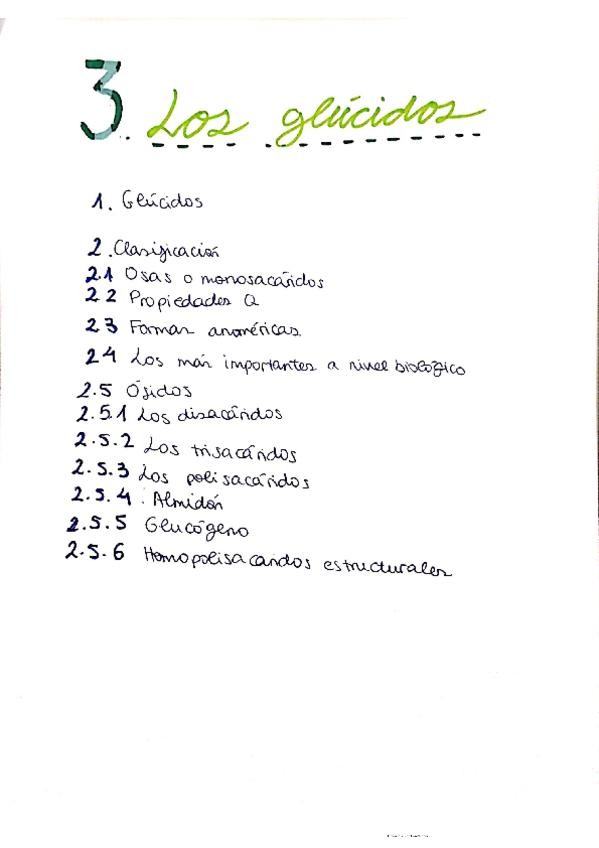 3. Los glúcidos
1. Glúcidos
2. Clasificación
2.1 Osas o monosacáridos
2.2 Propiedades Q
2.3 Formas anoméricas.
2.4 Los más importantes a nivel biológico
2.5 Ósidos
2.5.1 Los disacáridos
2.5.2 Los trisacáridos
2.5.3 Los polisacáridos
2.5.4. Almidón
2.5.5 Glucógeno
2.5.6 Homopolisacaridos estructurales